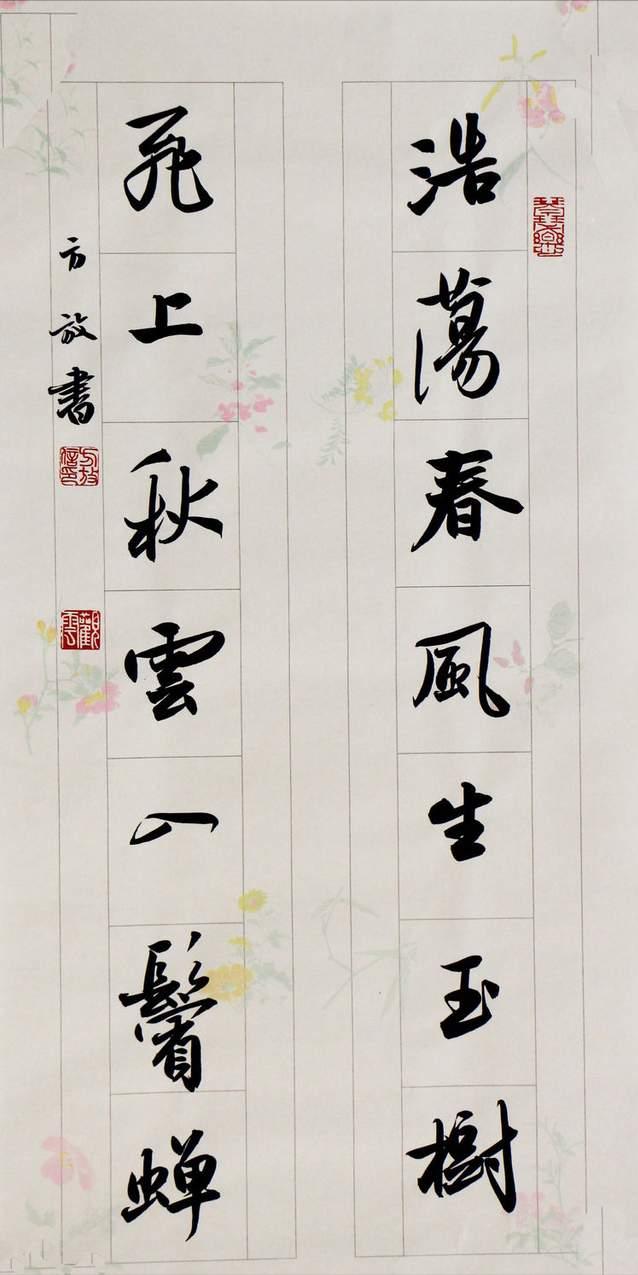 浩蕩春風生玉樹
飛上秋雲入鬢蝉
方放書